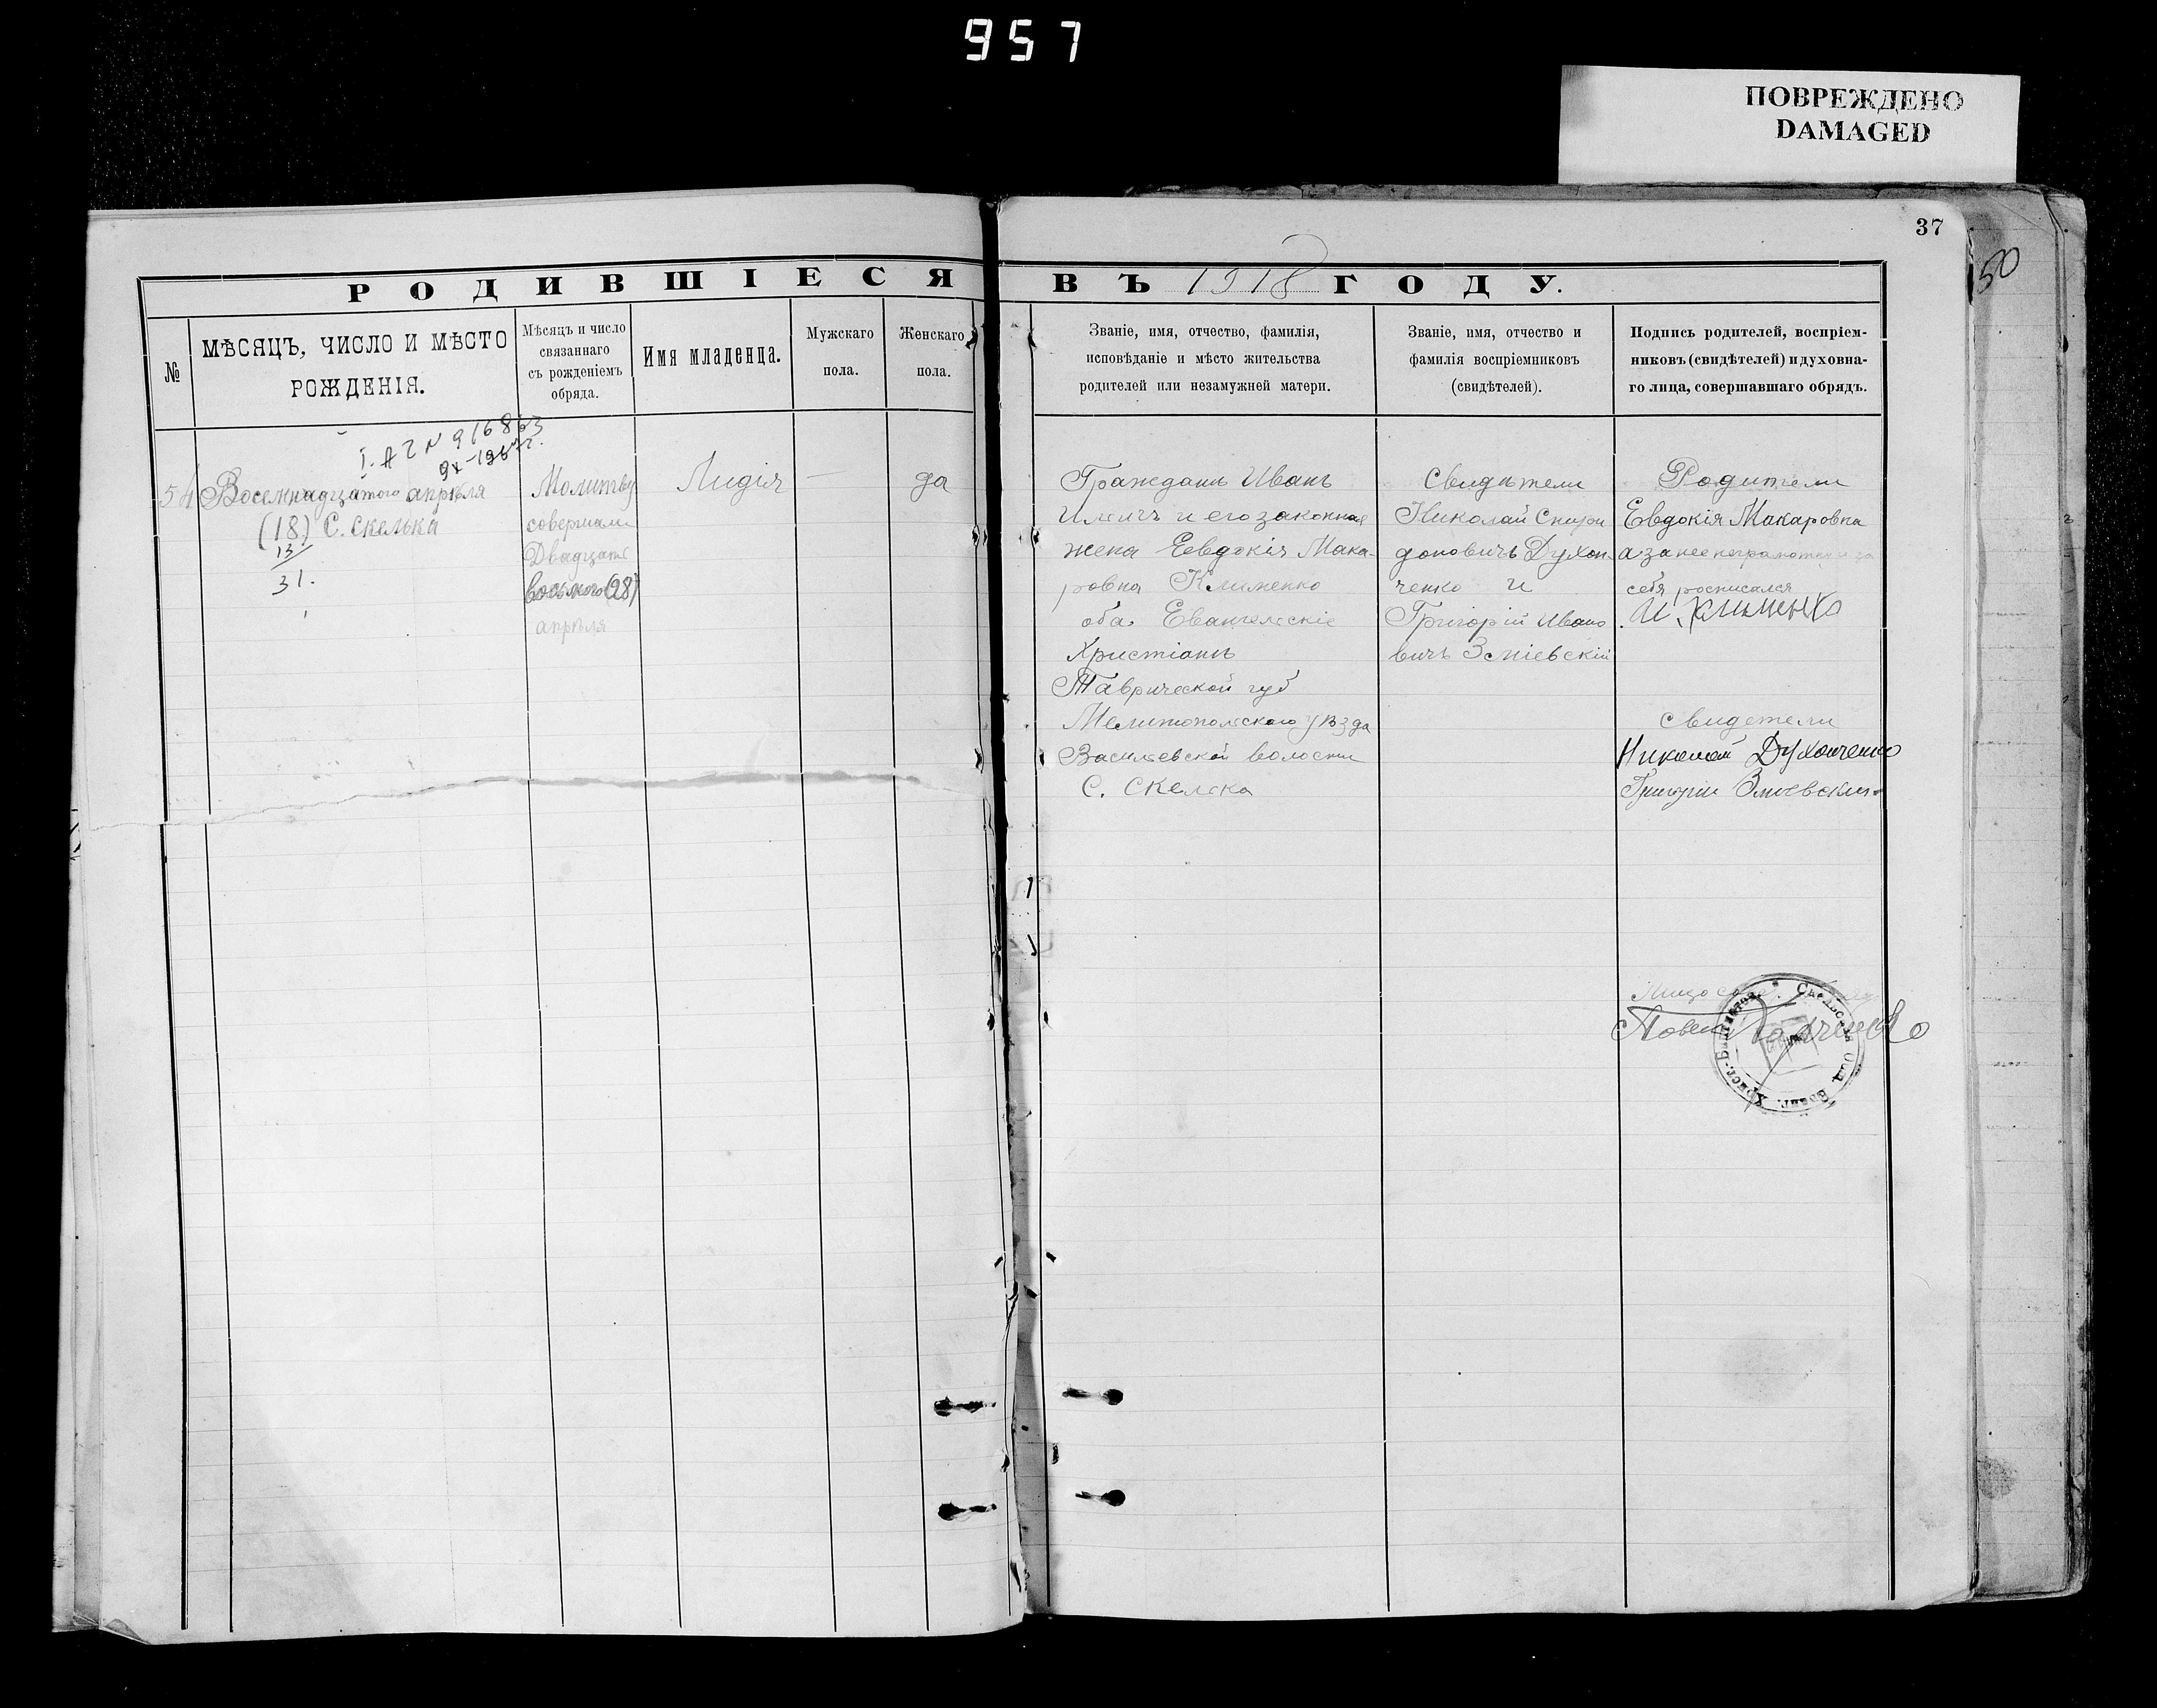 957
ПОВРЕЖДЕНО
DAMAGED
37
50
РОДИВШІЕСЯ ВЪ 1918 ГОДУ.
№
МѢСЯЦЪ, ЧИСЛО И МѢСТО
РОЖДЕНІЯ.
Мѣсяцъ и число
связаннаго
съ рожденіемъ
обряда.
Имя младенца.
Мужскаго
пола.
Женскаго
пола.
Званіе, имя, отчество, фамилія,
исповѣданіе и мѣсто жительства
родителей или незамужней матери.
Званіе, имя, отчество и
фамилія воспріемниковъ
(свидѣтелей).
Подпись родителей, воспріем-
никовъ (свидѣтелей) и духовна-
го лица, совершавшаго обрядъ.
54
Восемнадцатого апрѣля
(18) С. Скелька
13
31.
Молитву
совершали
Двадцать
восьмого (28)
апрѣля
Лидія
—
да
Гражданъ Иванъ
Иличъ и его законная
жена Евдокія Мака-
ровна Клименко
оба Евангельскіе
Христіанъ
Таврической губ
Мелитопольского уѣзда
Васильевской волости
С. Скелька
Свидѣтели
Николай Спири
доновичъ Духон
ченко и
Григорій Ивано
вичъ Зміевскій
Родители
Евдокія Макаровна
а за нее неграмотную
себя росписался
И. Клименко
Свидетели
Николай Духонченко
Григорій Змиевский